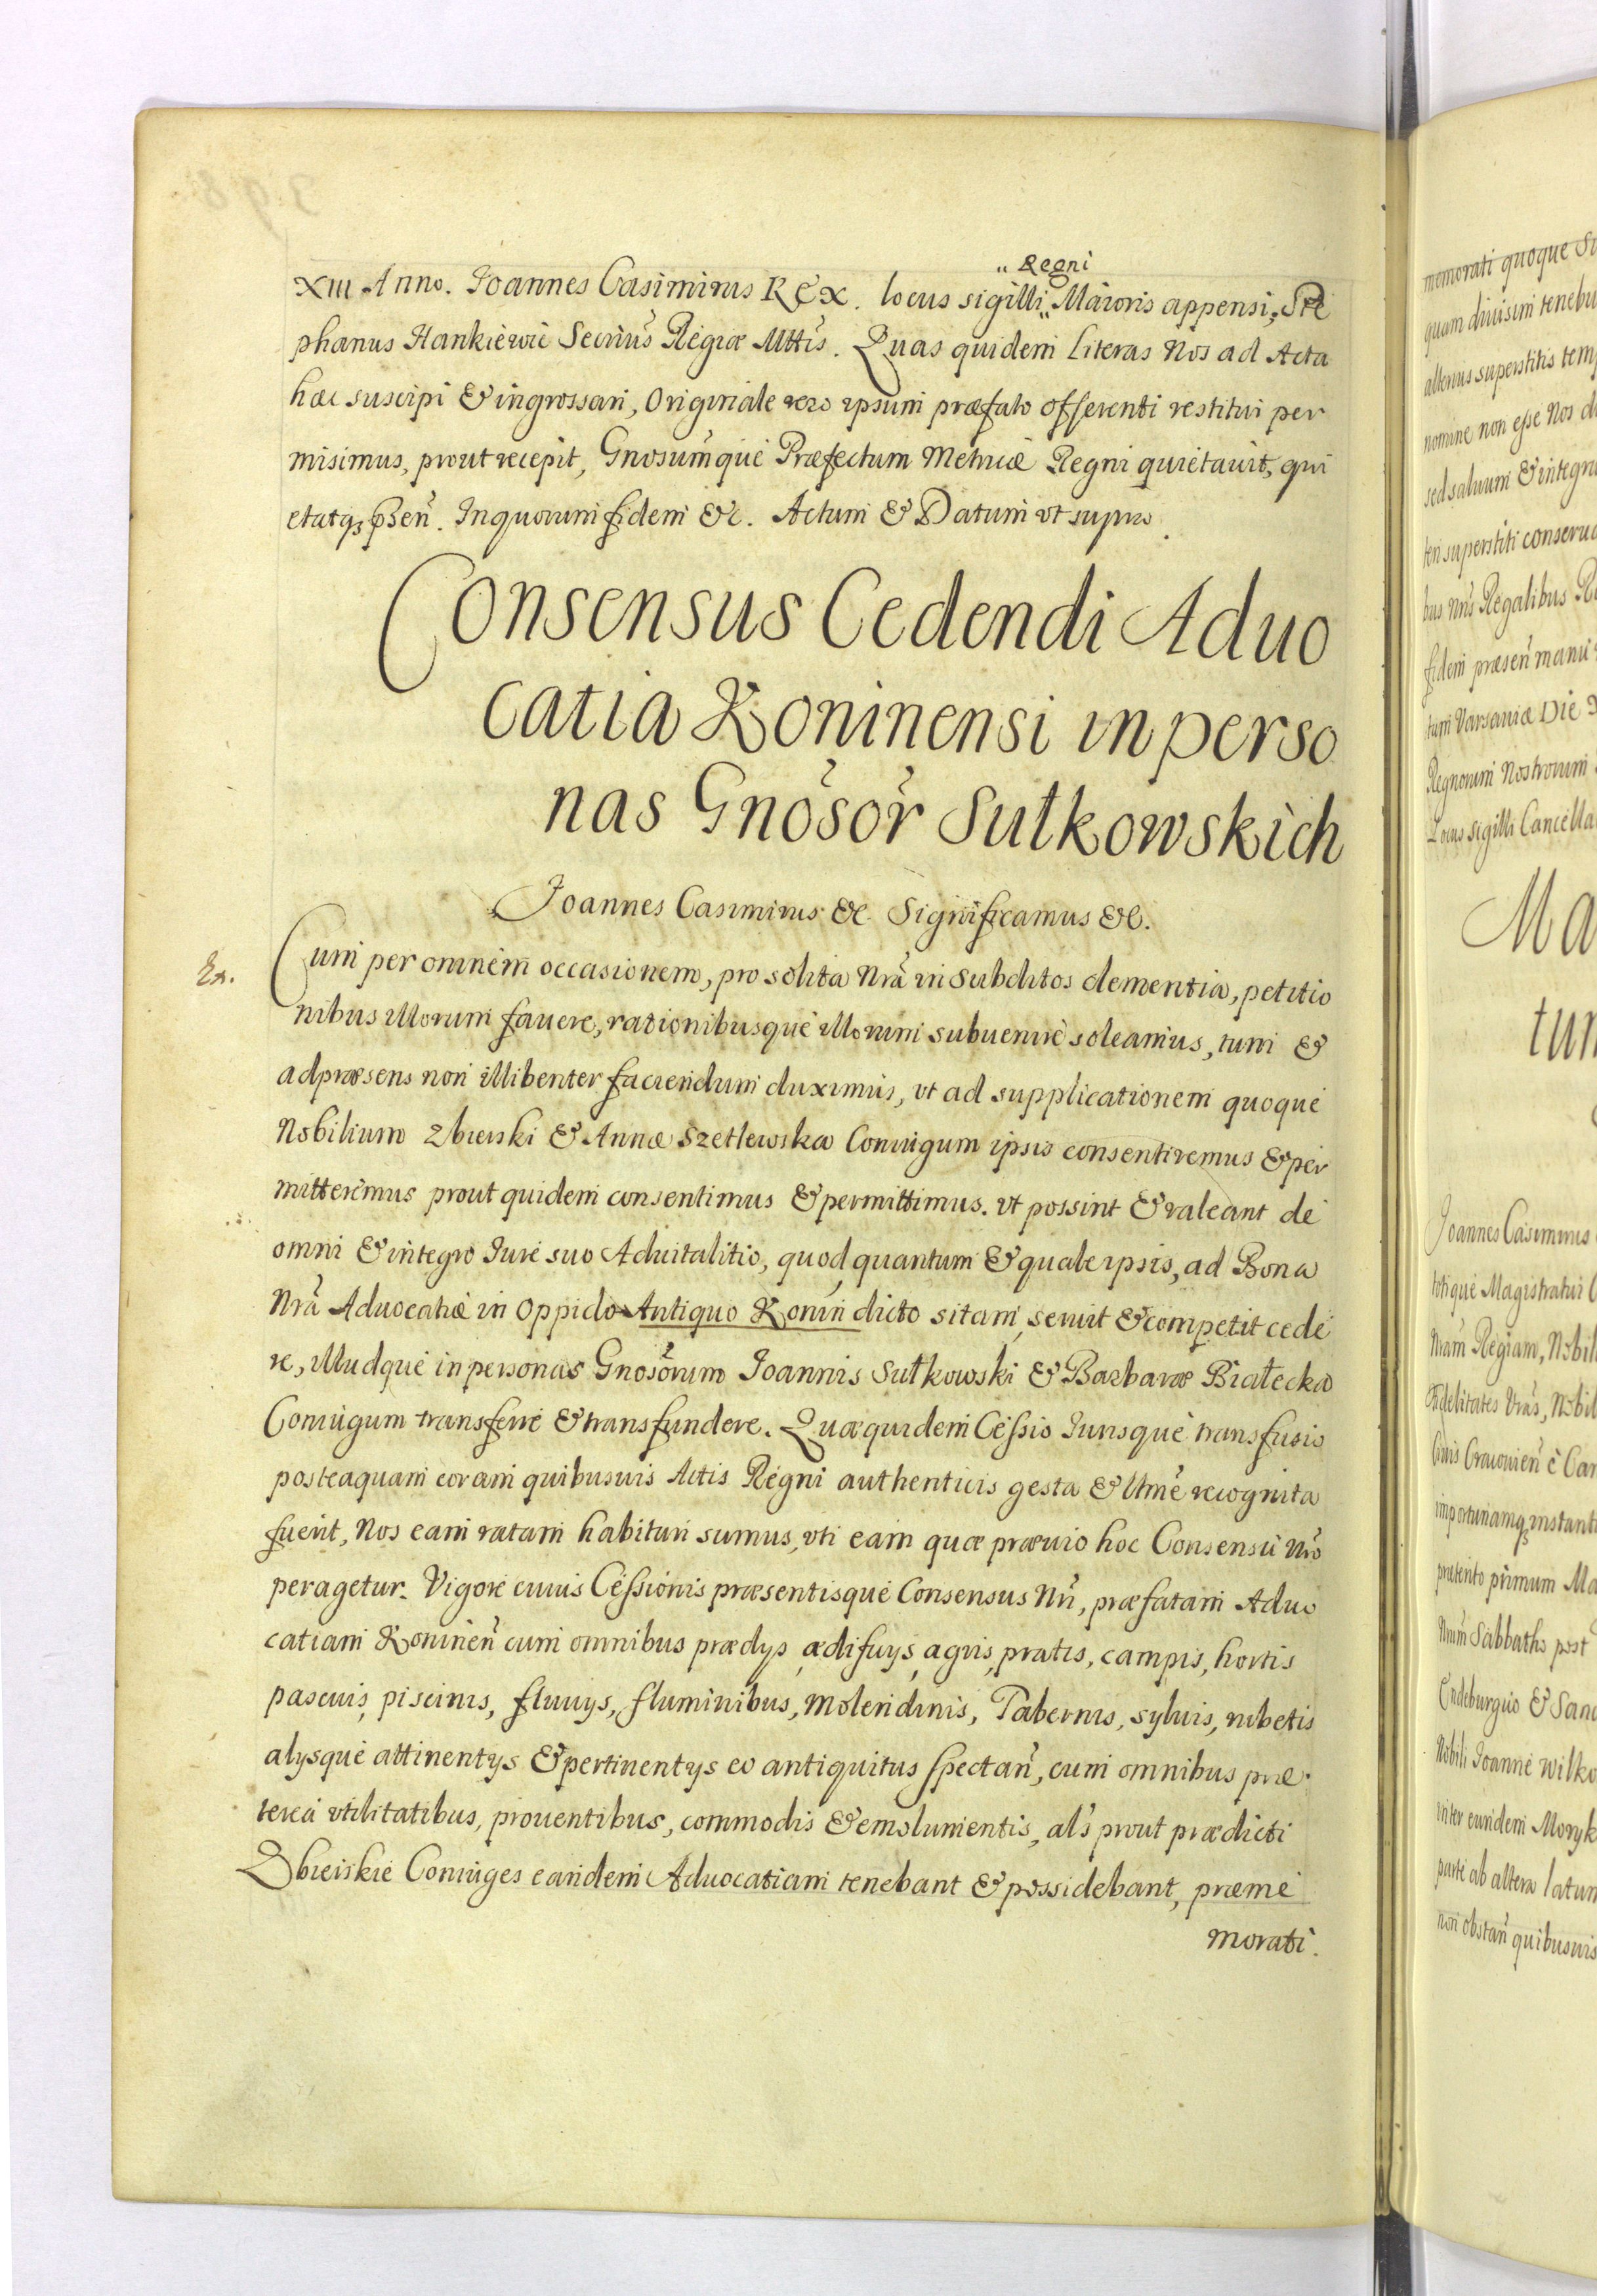 Regni
XIII Anno. Joannes Casimirus REX. locus sigilli Maioris appensi, Ste
phanus Hankiewic Secriûs Regiæ Mttis. Quas quidem literas Nos ad Acta
hæc suscipi & ingrossari, Originale vero ipsum præfato offerenti restitui per
misimus, prout recepit, Gnosumque Præfectum Metricæ Regni quietavit, qui
etatq; pñsen. In quorum fidem &c. Actum & Datum vt supra.
Consensus Cedendi Aduo
catia Koninensi in perso
nas Gnosor Sułkowskich
Joannes Casimirus &c. Significamus &c.
Cum per omnem occasionem, pro solita Nrã in Subditos clementia, petitio
nibus illorum fauere, rationibusque illorum subuenire soleamus, tum &
ad præsens non illibenter faciendum duximus, vt ad supplicationem quoque
Nobilium Zbierski & Annæ Szetlewska Coniugum ipsis consentiremus & per
mitteremus prout quidem consentimus & permittimus. vt possint & valeant de
omni & integro Jure suo Aduitalitio, quod quantum & quale ipsis, ad Bona
Nrã Aduocatiæ in Oppido Antiquo Konin dicto sitam, seruit & competit cede
re, illudque in personas Gnosorum Joannis Sułkowski & Barbaræ Białecka
Coniugum transferre & transfundere. Quæ quidem Cessio Jurisque transfusio
posteaquam coram quibusuis Actis Regni authenticis gesta & lŕtme recognita
fuerit, Nos eam ratam habituri sumus, vti eam quæ præuio hoc Consensu Nrõ
peragetur. Vigore cuius Cessionis præsentisque Consensus Nri, præfatam Aduo
catiam Koninen̄ cum omnibus prædys, ædificys, agris, pratis, campis, hortis
pascuis, piscinis, fluuys, fluminibus, molendinis, Tabernis, syluis, rubetis
alysque attinentys & pertinentys eo antiquitus spectan̄, cum omnibus præ
terea vtilitatibus, prouentibus, commodis & emolumentis, als prout prædicti
Zbierskie Coniuges eandem Aduocatiam tenebant & possidebant, præme
morati.
memorati quoque
quam diuisim tenebu
alterius superstitis tem
nomine non esse Nos
sed saluum & integru
teri superstiti conserua
bus Nris Regalibus
fidem præsen̄ manu
tum Varsauiæ Die
Regnorum Nostrorum
Locus sigilli Cancella
Ma
tum
Joannes Casimirus
totique Magistratui
Nram Regiam, Nobil
fidelitates Vras, Nobil
Ciuis Crauouien̄ è
importunamq; instant
prætento primum
Nrum Sabbatho post
Endeburgio & San
Nobili Joanne Wilko
inter eundem Moryk
parte ab altera latum
non obstan̄ quibusuis